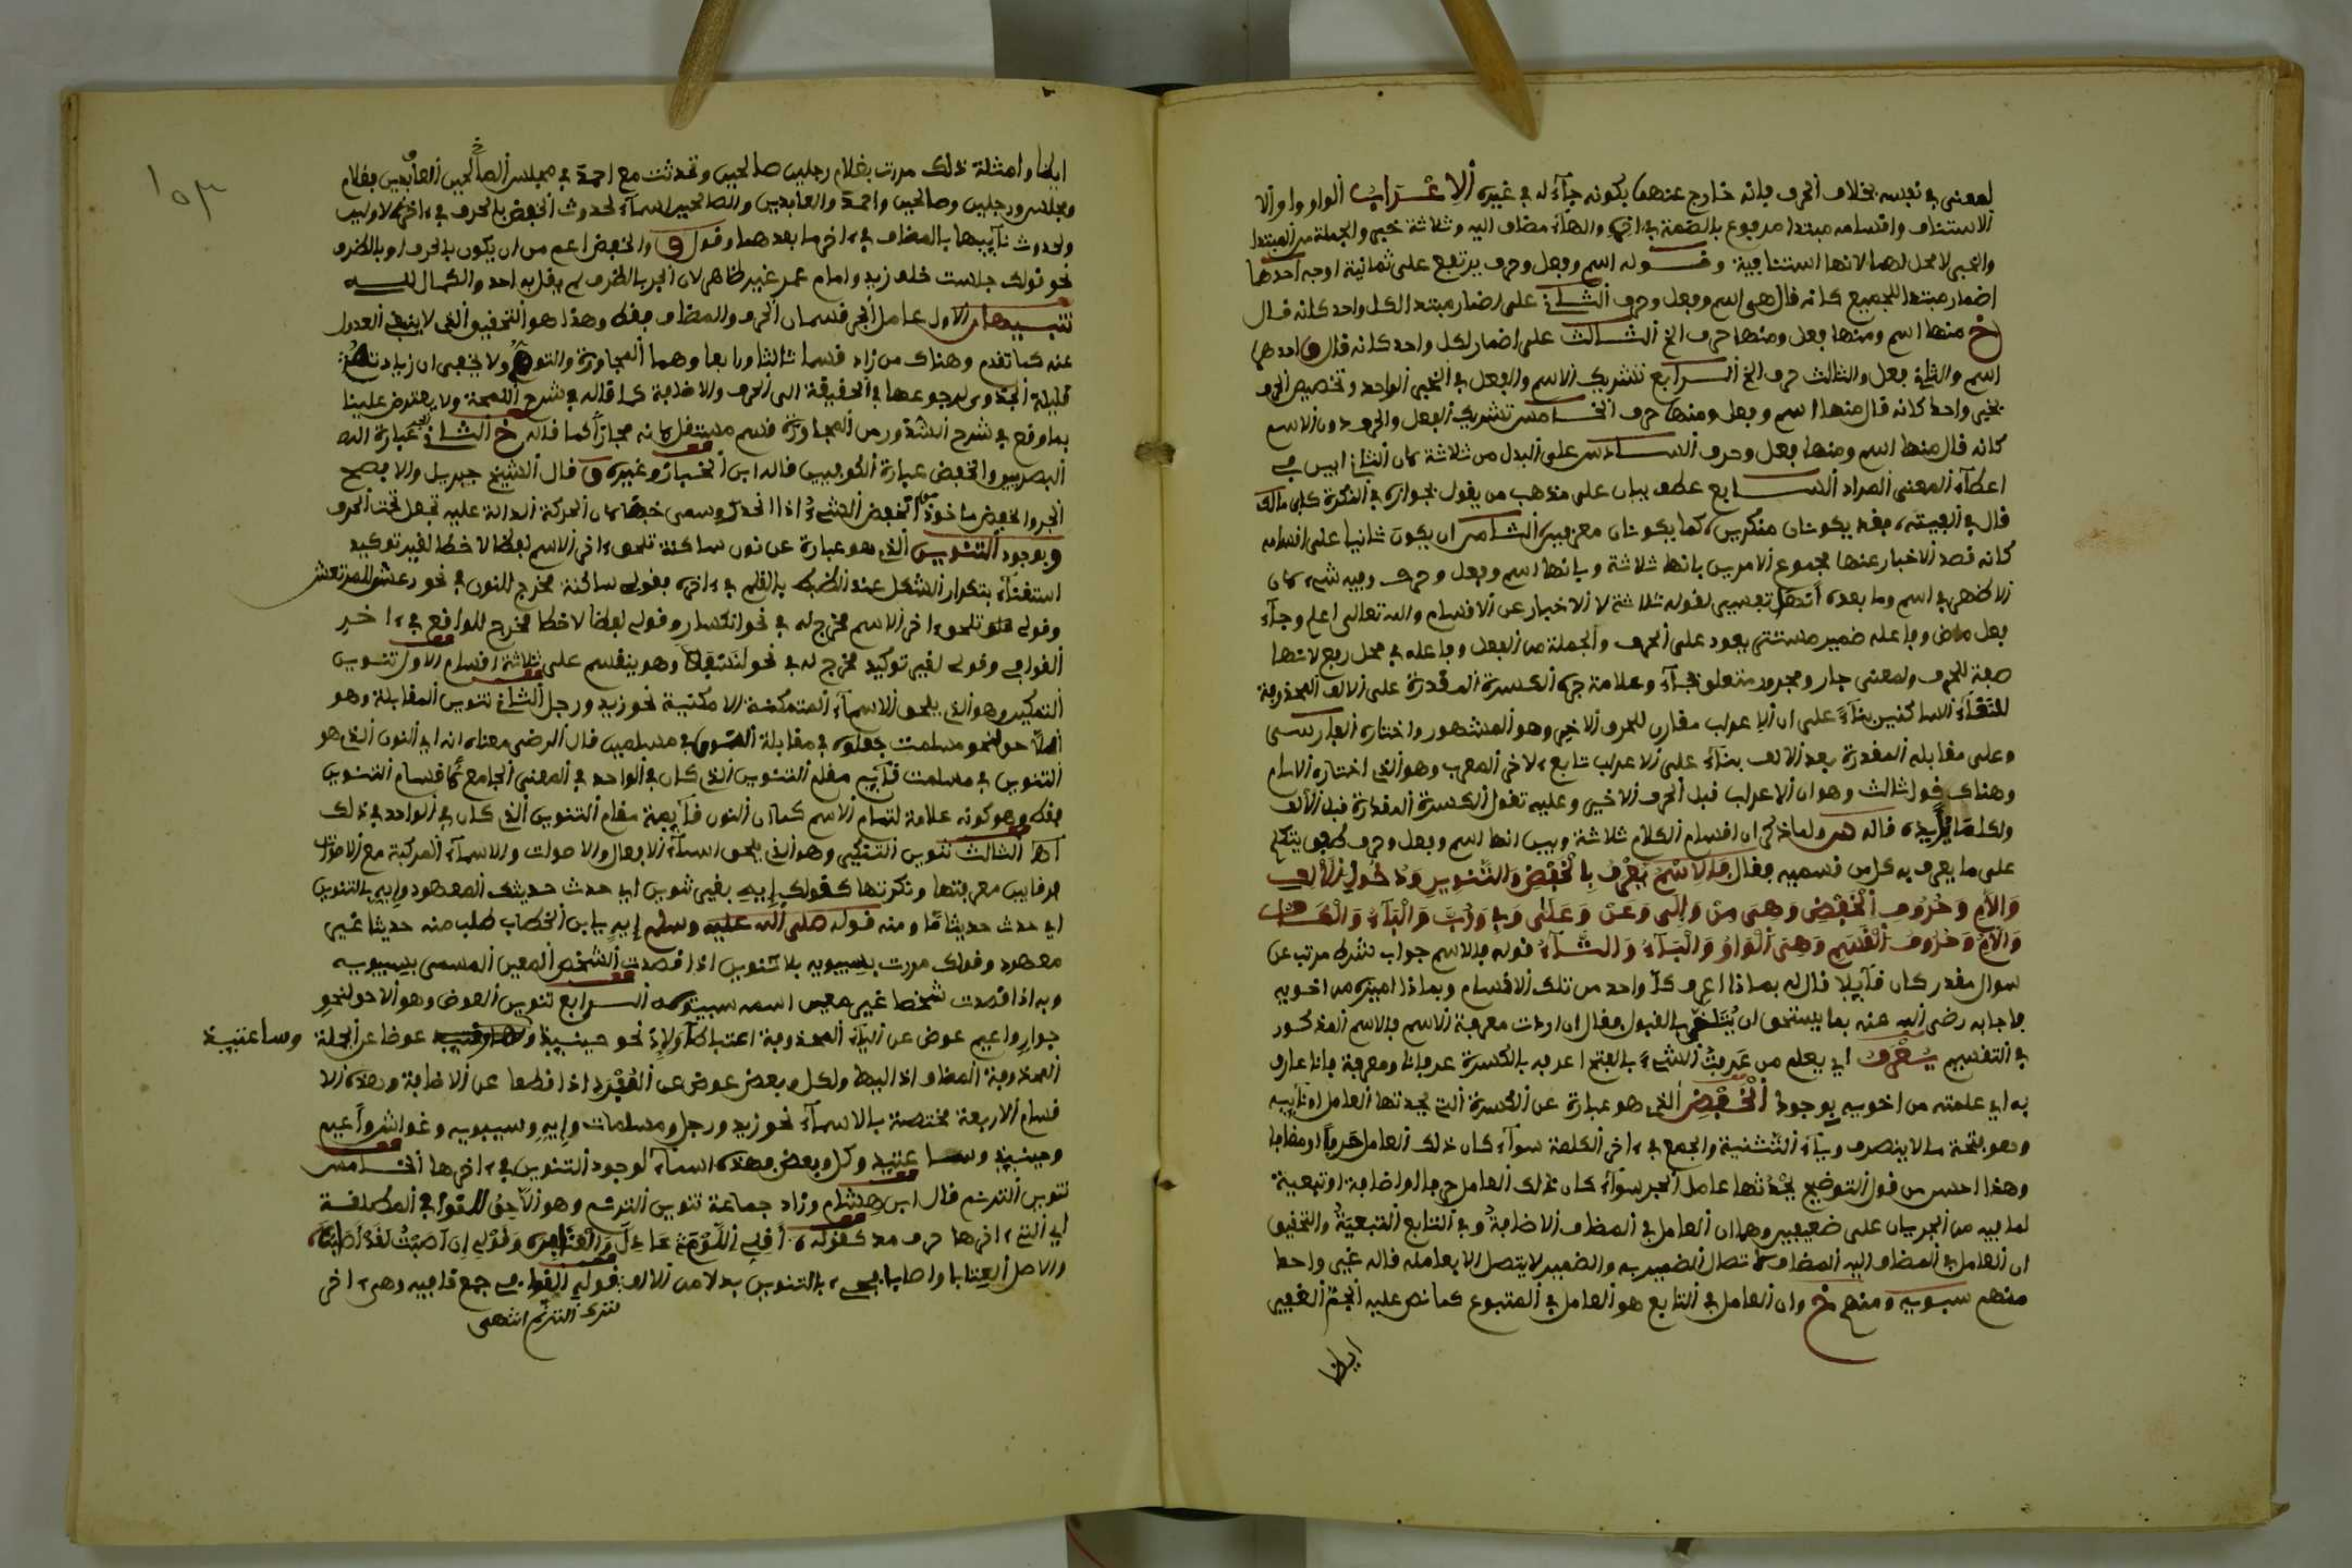 لمعنى في نفسه بخلاف الحرف فانه خارج عنهما بكونه جآء له في غيره الاِعْـرَابُ الواو واو الا
الاستئناف واقسامه مبتدا مرفوع بالضمة في اخره والهآء مضاف اليه وثلاثة خبر والجملة من المبتدا
والخبر لا محل لها لانها استئنافية وقوله اسم وفعل وحرف يرتفع على ثمانية اوجه احدها
اضمار مبتدا للجميع كانه قال هي اسم وفعل وحرف الثاني على اضمار مبتدا لكل واحد كانه قال
خ منها اسم ومنها فعل ومنها حرف الخ الثالث على اضمار لكل واحد كانه قال و احدها
اسم والثاني فعل والثالث حرف الخ الرابع تشريك الاسم والفعل في الخبر الواحد وتخصيص الحرف
بخبر واحد كانه قال منها اسم وفعل ومنها حرف الخامس تشريك الفعل والحرف دون الاسم
كانه قال منها اسم ومنها فعل وحرف السادس على البدل من ثلاثة كان الثاني ابين في
اعطآء المعنى المراد السابع عطف بيان على مذهب من يقول بجوازه في النكرة كابن مالك
قال في الفيته فقد يكونان منكرين كما يكونان معرفين الثامن ان يكون ثانيا على اقسامه
كانه قصد الاخبار عنها بمجموع الامرين بانها ثلاثة وبانها اسم وفعل وحرف وفيه شيء كان
الاظهر في اسم وما بعده انه تفسير لقوله ثلاثة لا الاخبار عن الاقسام والله تعالى اعلم وجآء
فعل ماض وفاعله ضمير مستتر يعود على الحرف والجملة من الفعل وفاعله في محل رفع لانها
صفة للحرف ولمعنى جار ومجرور متعلق بجآء وعلامة جره الكسرة المقدرة على الالف المحذوفة
للتقآء الساكنين بنآء على ان الاعراب مقارن للحرف الاخير وهو المشهور واختاره الفارسي
وعلى مقابله المقدرة بعد الالف بنآء على الاعراب تابع لاخر المعرب وهو الذي اختاره الامام
وهناك قول ثالث وهو ان الاعراب قبل الحرف الاخير وعليه تقول الكسرة المقدرة قبل الالف
ولكلامه ... قاله ... ولما ذكر ان اقسام الكلام ثلاثة وبين انها اسم وفعل وحرف طفق يتكلم
على ما يعرف به كل من قسميه فقال فَالاِسْمُ يُعْرَفُ بِالْخَفْضِ وَالتَّنْوِينِ وَدُخُولِ الأَلِفِ
وَاللَّامِ وَحُرُوفِ الْخَفْضِ وَهِيَ مِنْ وَإِلَى وَعَنْ وَعَلَى وَفِي وَرُبَّ وَالْبَآءُ وَالْكَافُ
وَاللَّامُ وَحُرُوفُ الْقَسَمِ وَهِيَ الْوَاوُ وَالْبَآءُ وَالتَّآءُ قوله فالاسم جواب شرط مرتب عن
سوال مقدر كان قآيلا قال له بماذا اعرف كل واحد من تلك الاقسام وبماذا اميزه من اخويه
فاجابه رضي الله عنه بما يستحق ان يُتَلَقَّى بالقبول فقال ان اردت معرفة الاسم فالاسم المذكور
في التقسيم يُعْرَفُ اي يعلم من عَرِفتُ الشيءَ بالفتح اعرفه بالكسرة عرفانا ومعرفة فانا عارف
به اي علمته من اخويه بوجود الْخَفْضِ الذي هو عبارة عن الكسرة التي يحدثها العامل او نآيبه
وهو فتحة ما لا ينصرف ويآء التثنية والجمع في اخر الكلمة سوآء كان ذلك العامل حرفا او مضافا
وهذا احسن من قول التوضيح يحدثها عامل الجر سوآء كان ذلك العامل حرفا او اضافة او تبعية
لما فيه من الجريان على ضعيفين وهما ان العامل في المضاف الاضافةُ وفي التابع التبعيةُ والتحقيق
ان العامل في المضاف اليه المضاف لاتصال الضمير به والضمير لا يتصل الا بعامله قاله غير واحد
منهم سبويه ومنهم خ وان العامل في التابع هو العامل في المتبوع كما نص عليه الجم الغفير
ايضا
١٥٣
ايضا وامثلة ذلك مررت بغلام رجلين صالحين وتحدثت مع احمدَ في مجلس الصالحين العابدين فغلام
ومجلس ورجلين وصالحين واحمدَ والعابدين والصالحين اسمآء لحدوث الخفض بالحرف في اخر الاولين
ولحدوث نآيبها بالمضاف في اخر ما بعدهما وقول و والخفض اعم من ان يكون بالحرف او بالظرف
نحو قولك جلست خلف زيد وامام عمر غير ظاهر لان الجر بالظرف لم يقل به احد والكمال لله
تنبيهان الاول عامل الجر قسمان الحرف والمضاف فقط وهذا هو التحقيق الذي لا ينبغي العدول
عنه كما تقدم وهناك من زاد قسما ثالثا ورابعا وهما المجاورة والتوهم ولا يخفى ان زيادته
قليلة الجدوى لرجوعها في الحقيقة الى الحرف والاضافة كما قاله في شرح اللمحة ولا يعترض علينا
بما وقع في شرح الشذور من المجاورة قسم مستقل فانه مجازا كما قاله خ الثاني الجر عبارة الـ
البصريين والخفض عبارة الكوفيين قاله ابن الخباز وغيره و قال الشيخ جبريل والا فصح
الجر والخفض ماخوذ من انخفض الشيء اذا انحدر وسمي خفضا كان الحركة الدالة عليه تجعل تحت الحرف
وبوجود التنوين الذي هو عبارة عن نون ساكنة تلحق اخر الاسم لفظا لا خطا لغير توكيد
استغنآء بتكرار الشكل عند الضبط بالقلم في اخره فقولي ساكنة مخرج للنون في نحو رعشن للمرتعش
وقولي تلحق اخر الاسم مخرج له في نحو انكسار وقولي لفظا لا خطا مخرج للواقع في اخر
القوافي وقولي لغير توكيد مخرج له في نحو لنسفعا وهو ينقسم على ثلاثة اقسام الاول تنوين
التمكين وهو الذي يلحق الاسمآء المتمكنة الامكنية نحو زيد ورجل الثاني تنوين المقابلة وهو
اللاحق لنحو مسلمات جعلوه في مقابلة النون في مسلمين قال الرضي معناه انه اي النون الذي هو
التنوين في مسلمات قآيم مقام التنوين الذي كان في الواحد في المعنى الجامع لاقسام التنوين
فقط وهو كونه علامة لتمام الاسم كما ان النون قآيمة مقام التنوين الذي كان في الواحد في ذلك
اه الثالث تنوين التنكير وهو الذي يلحق اسمآء الافعال والاصوات والاسمآء المركبة مع الاصوات
فرقا بين معرفتها ونكرتها كقولك إيهِ بغير تنوين اي حدث حديثك المعهود وإيهٍ بالتنوين
اي حدث حديثا مّا ومنه قوله صلى الله عليه وسلم إيهٍ يا ابن الخطاب طلب منه حديثا غير
معهود وقولك مررت بسيبويه بلا تنوين اذا قصدت الشخص المعين المسمى بسيبويه
وبه اذا قصدت شخصا غير معين اسمه سيبويه الرابع تنوين العوض وهو اللاحق لنحو
جوارٍ واعيم عوض عن اليآء المحذوفة اعتباطا ولإذ نحو حينيذ وساعتيذ عوضا عن الجملة
المحذوفة المضاف اذ اليها ولكل وبعض عوض عن المُفْرَد اذا قطعا عن الاضافة وهذه الا
قسام الاربعة مختصة بالاسمآء نحو زيد ورجل ومسلمات وإيهٍ وسيبويه وغواش واعيم
وحينيذ وساعتيذ وكل وبعض فهذه اسمآء لوجود التنوين في اخرها الخامس
تنوين الترنم قال ابن هشام وزاد جماعة تنوين الترنم وهو اللاحق للقوافي المطلقة
اي التي اخرها حرف مد كقوله أَقِلِّي اللَّوْمَ عَاذِلَ وَالْعِتَابَنْ وَقُولِي اِنْ أَصَبْتُ لَقَدْ أَصَابَنْ
والاصل العتابا واصابا فجيء بالتنوين بدلا من الالف فقولي القوافي جمع قافية وهي اخر
لترك الترنم انتهى